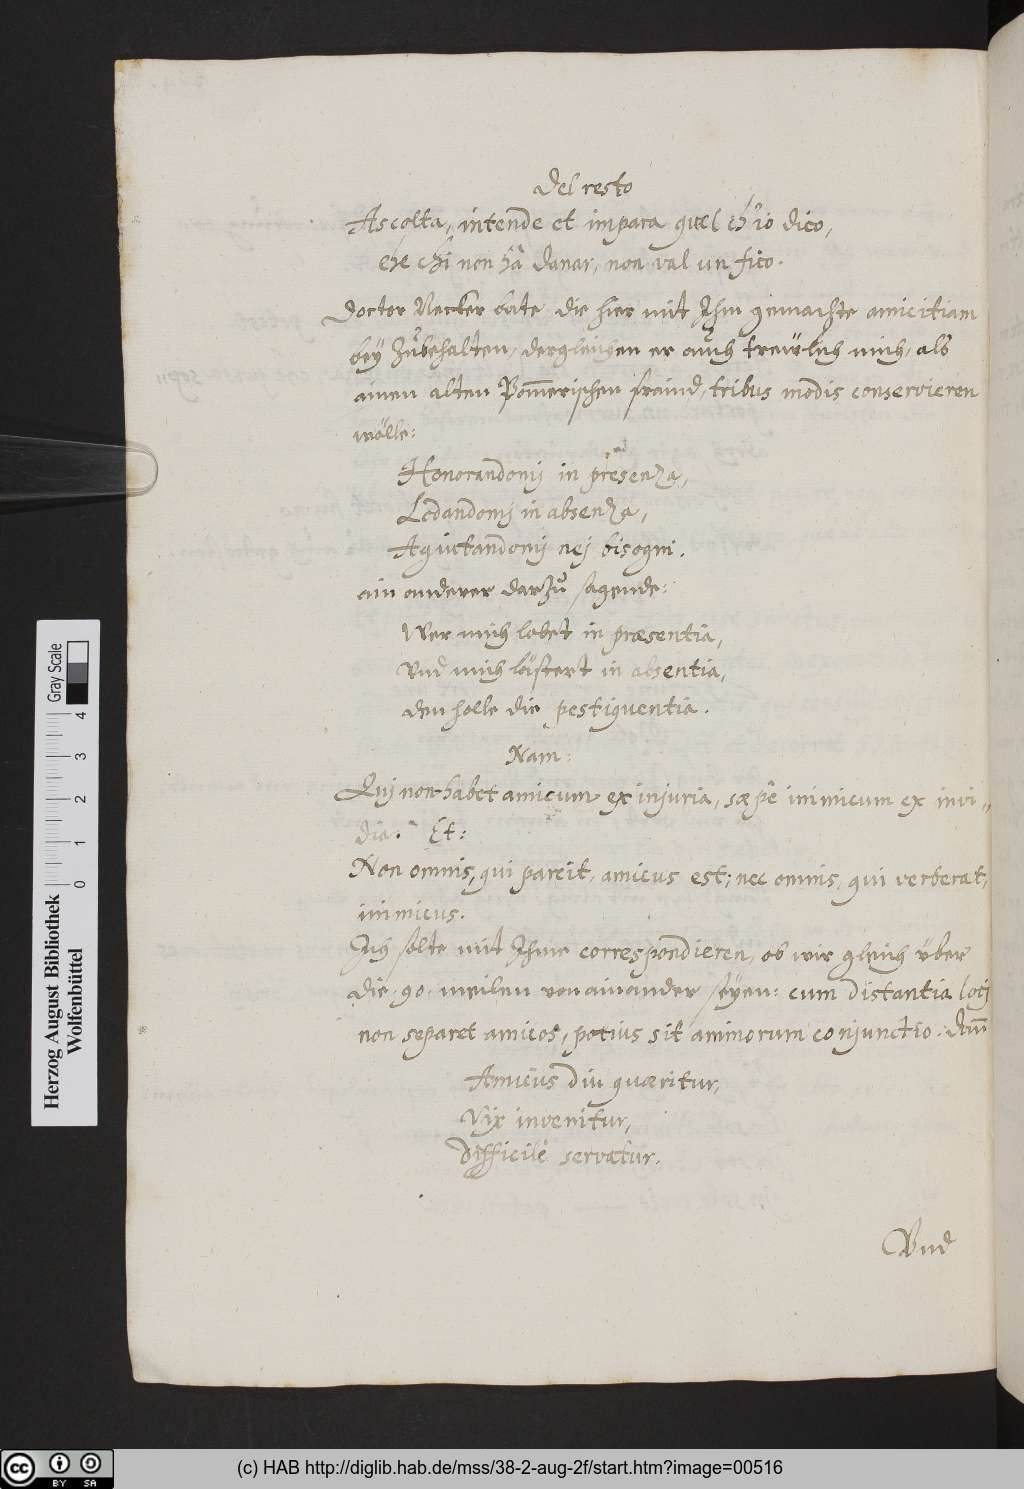 Del resto
Ascolta, intende et impara quel ch'io dico,
che chi non hà danar, non val un fico.
Doctor Necker bate, die hier mit Ihm gemachte amicitiam
bey Zůbehalten, dergleichen er aůch trewlich mich, als
ainen alten Pom̄erischen fraind, tribus modis conservieren
wölle:
Honorandomj in presenza,
Lodandomj in absenza,
Agiutandomj nej bisogni.
ain anderer darzů sagende:
Wer mich lobet in præsentia,
Vnd mich lästert in absentia,
den holle die pestiquentia.
Nam:
Quj non habet amicum ex injuria, sæpè inimicum ex invi-
dia. Et:
Non omnis, qui parcit, amicus est; nec omnis, qui verberat,
inimicus.
Ich solte mit Ihme correspondieren, ob wir gleich über
die .90. meilen von ainander seyen: cum distantia locj
non separet amicos, potius sit animorum conjunctio. dañ
Amicus diu quæritur,
Vix invenitur,
Difficilè servatur.
Vnd
Herzog August Bibliothek
Wolfenbüttel
0 1 2 3 4
Gray Scale
cc BY SA
(c) HAB http://diglib.hab.de/mss/38-2-aug-2f/start.htm?image=00516